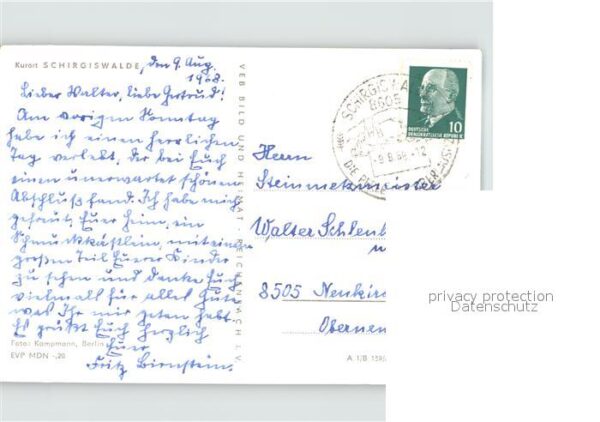 Kurort SCHIRGISWALDE, den 9. Aug.
1968.
Lieber Walter, liebe Gertrud!
Am vorigen Sonntag
habe ich einen herrlichen
Tag verlebt, der bei Euch
einen unerwartet schönen
Abschluß fand. Ich habe mich
gefreut, Euer Heim, ein
Schmuckkästlein, mit einem
großen Teil Eurer Kinder
zu sehen und danke Euch
vielmals für alles Gute
was Ihr mir getan habt.
Es grüßt Euch herzlich
Euer
Fritz Birnstein.
Foto: Kampmann, Berlin
EVP MDN -,20
VEB BILD UND HEIMAT · REICHENBACH I. V.
A 1/B 159
8605
9.8.68.-12
DIE PERLE DER
10
DEUTSCHE
DEMOKRATISCHE REPUBLIK
Herrn
Steinmetzmeister
Walter Schlenk
8505 Neukirc
Obernen
privacy protection
Datenschutz